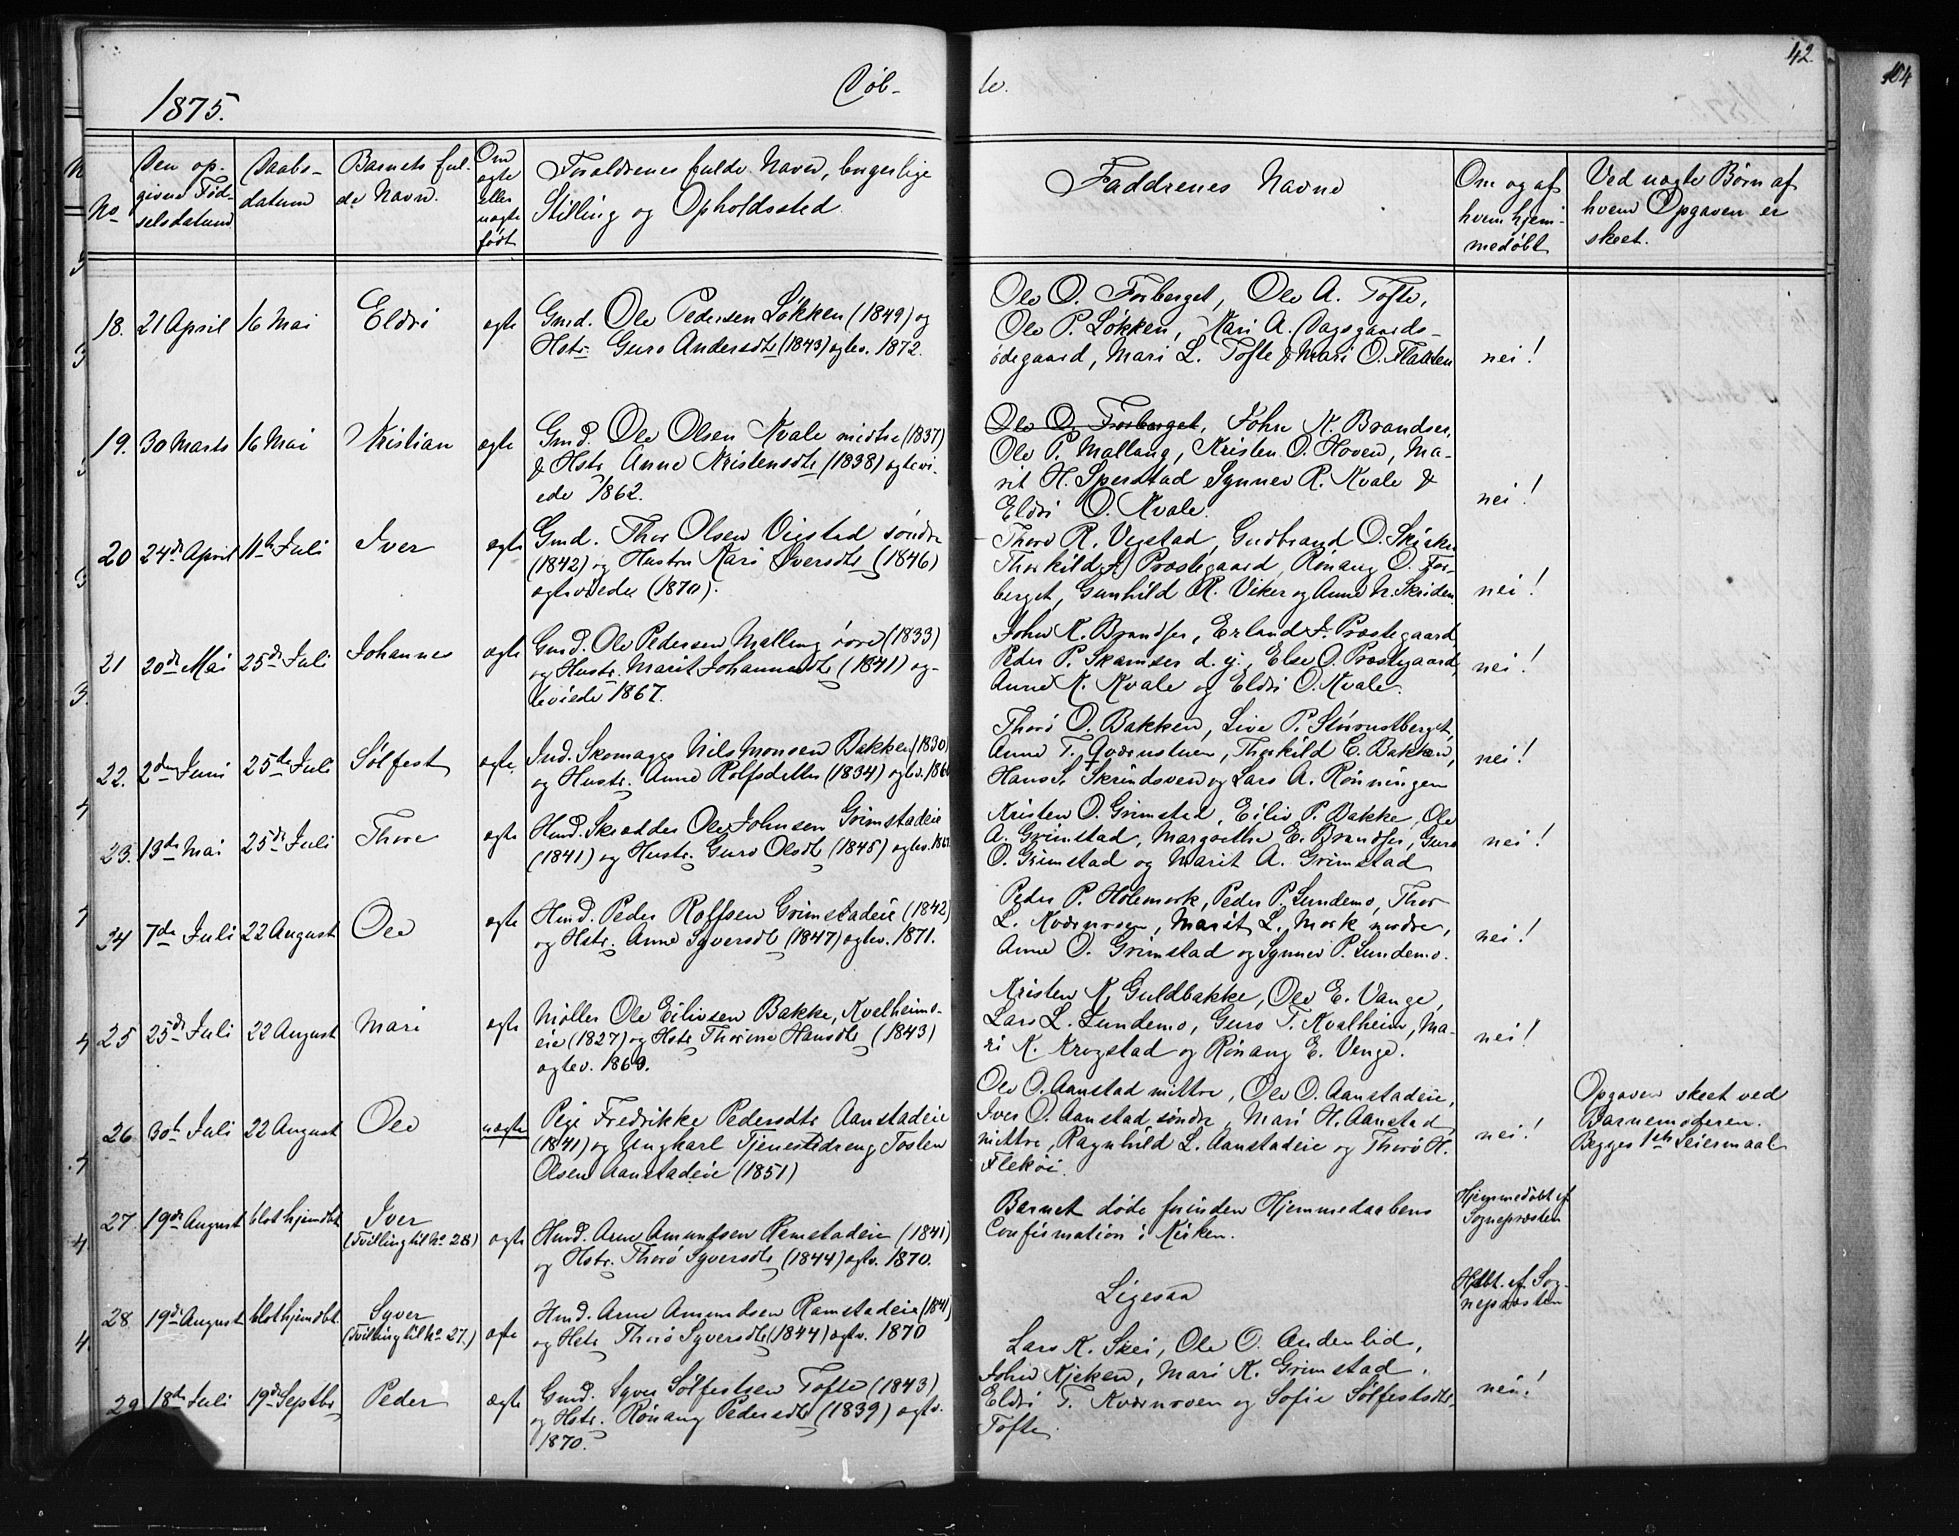 42
1875.
Døb-
te.
No
Den op-
givne Fød-
selsdatum
Daabs-
datum
Barnets ful-
de Navn.
Om
ægte
eller
uægte
født
Forældrenes fulde Navne, borgerlige
Stilling og Opholdssted.
Faddrenes Navne
Om og af
hvem hjem-
medøbt
Ved uægte Børn af
hvem Opgaven er
skeet.
18. 21 April 16 Mai Eldri ægte
Gmd. Ole Pedersen Løkken (1849) og
Hstr. Guro Andersdtr (1843) ægtev. 1872.
Ole O. Forberget, Ole A. Tofte,
Ole P. Løkken, Kari A. Dagsgaards-
ødegaard, Mari L. Tofte & Mari O. Flaaten
nei!
19. 30 Marts 16 Mai Kristian ægte
Gmd. Ole Olsen Kvale midtre (1837)
& Hstr. Anne Kristensdtr (1838) ægtevi-
ede 1862.
Ole O. Forberget, John K. Brandser,
Ole P. Mallang, Kristen O. Hoven, Ma-
rit H. Sperstad Synnev R. Kvale &
Eldri O. Kvale.
nei!
20 24de April 11te Juli Iver ægte
Gmd. Thor Olsen Viistad søndre
(1842) og Hustru Kari Iversdtr (1846)
ægteviede (1870).
Thore R. Vegstad, Gudbrand O.
Thorkild Præstegaard, Rønaug O. For-
berget, Gunhild R. Viker og Anne N. Skriden.
nei!
21 20de Mai 25de Juli Johannes ægte
Gmd. Ole Pedersen Malling øvre (1833)
og Hustr. Marit Johannesdtr (1841) æg-
teviede 1867.
John K. Brandser, Erland J. Præstegaard,
Peder P. Skamser d. y., Else O. Præstegaard,
Anne K. Kvale og Eldri O. Kvale.
nei!
22. 2den Juni 25de Juli Sølfest ægte
Ind. Skomager Nils Monsen Bakken (1830)
og Hustr. Anne Rolfsdatter (1834) ægtev.
Thorø O. Bakken, Live P.
Anne T. Kværnstuen, Thorkild E. Bakken,
Hans S. Skrindsven og Lars A. Rønningen
nei!
23. 13de Mai 25de Juli Thore ægte
Hmd. Skrædder Ole Johnsen Grimstadeie
(1841) og Hustr. Guro Olsdtr (1845) ægtev.
Kristen O. Grimstad, Eiliv P. Bakke, Ole
A. Grimstad, Margrethe E. Brandser, Guro
O. Grimstad og Marit A. Grimstad
nei!
24 7de Juli 22 August Ole ægte
Hmd. Peder Rolfsen Grimstadeie (1842)
og Hstr. Anne Syversdtr (1847) ægtev. 1871.
Peder P. Holemork, Peder P. Sundemo, Thor
L. Kværnvoen, Marit L. Mork nordre,
Anne O. Grimstad og Synnev P. Sundemo.
nei!
25 25de Juli 22 August Mari ægte
Møller Ole Eilivsen Bakke, Kvalheims-
eie (1827) og Hstr Thorine Hansdtr (1843)
ægtev. 1869.
Kristen K. Guldbakke, Ole E. Vange,
Lars L. Sundemo, Guro T. Kvalheim, Ma-
ri K. Krogstad og Rønaug E. Venge.
nei!
26 30te Juli 22 August Ole uægte
Pige Fredrikke Pedersdtr Aanstadeie
(1841) og Ungkarl Tjenestedreng Tosten
Olsen Aanstadeie (1851)
Ole O. Aanstad mittre, Ole O. Aanstadeie,
Iver O. Aanstad søndre, Mari H. Aanstad
mittre, Ragnhild L. Aanstadeie og Thorø H.
Flekøi.
nei!
Opgaven skeet ved
Barnemoderen.
Begges 1ste Leiermaal
27. 19de August blot hjemdbt. Iver
(Tvilling til No 28) ægte
Hmd. Arne Amundsen Ramstadeie (1841)
og Hstr. Thorø Syversdtr (1844) ægtv. 1870.
Barnet døde forinden Hjemmedaabens
Confirmation i Kirken.
Hjemmedøbt af
Sognepræsten
28 19de August blot hjemdbt. Syver
(Tvilling til No 27.) ægte
Hmd. Arne Amundsen Ramstadeie (1841)
og Hstr Thorø Syversdtr (1844) ægtv. 1870
Ligesaa
Hdbt. af Sog-
nepræsten
29 18de Juli 19de Septbr Peder ægte
Gmd. Syver Sølfestsen Tofte (1843)
og Hstr. Rønaug Pedersdtr (1839) ægtv.
1870.
Lars K. Skei, Ole O. Andenlid,
John Kjeken, Mari K. Grimstad,
Eldri T. Kværnvoen og Sofie Sølfestsdtr
Tofte.
nei!